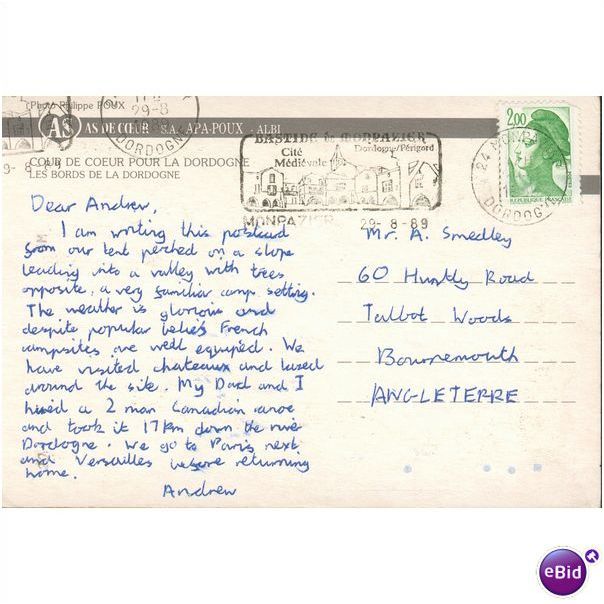 Photo Philippe POUX
29-8
DORDOGNE
AS AS DE CŒUR - S.A. APA-POUX - ALBI
9-8
COUP DE COEUR POUR LA DORDOGNE
LES BORDS DE LA DORDOGNE
BASTIDE de MONPAZIER
Cité Dordogne/Périgord
Médiévale
MONPAZIER 29-8-89
2,00
REPUBLIQUE FRANÇAISE
24 MONPAZIER
DORDOGNE
Dear Andrew,
I am writing this postcard
from our tent perched on a slope
leading into a valley with trees
opposite, a very familiar camp setting.
The weather is glorious and
despite popular belief French
campsites are well equiped. We
have visited chateaux and lazed
around the site. My Dad and I
hired a 2 man Canadian canoe
and took it 17km down the river
Dordogne. We go to Paris next
and Versailles before returning
home.
Andrew
Mr. A. Smedley
60 Huntly Road
Talbot Woods
Bournemouth
ANGLETERRE
eBid